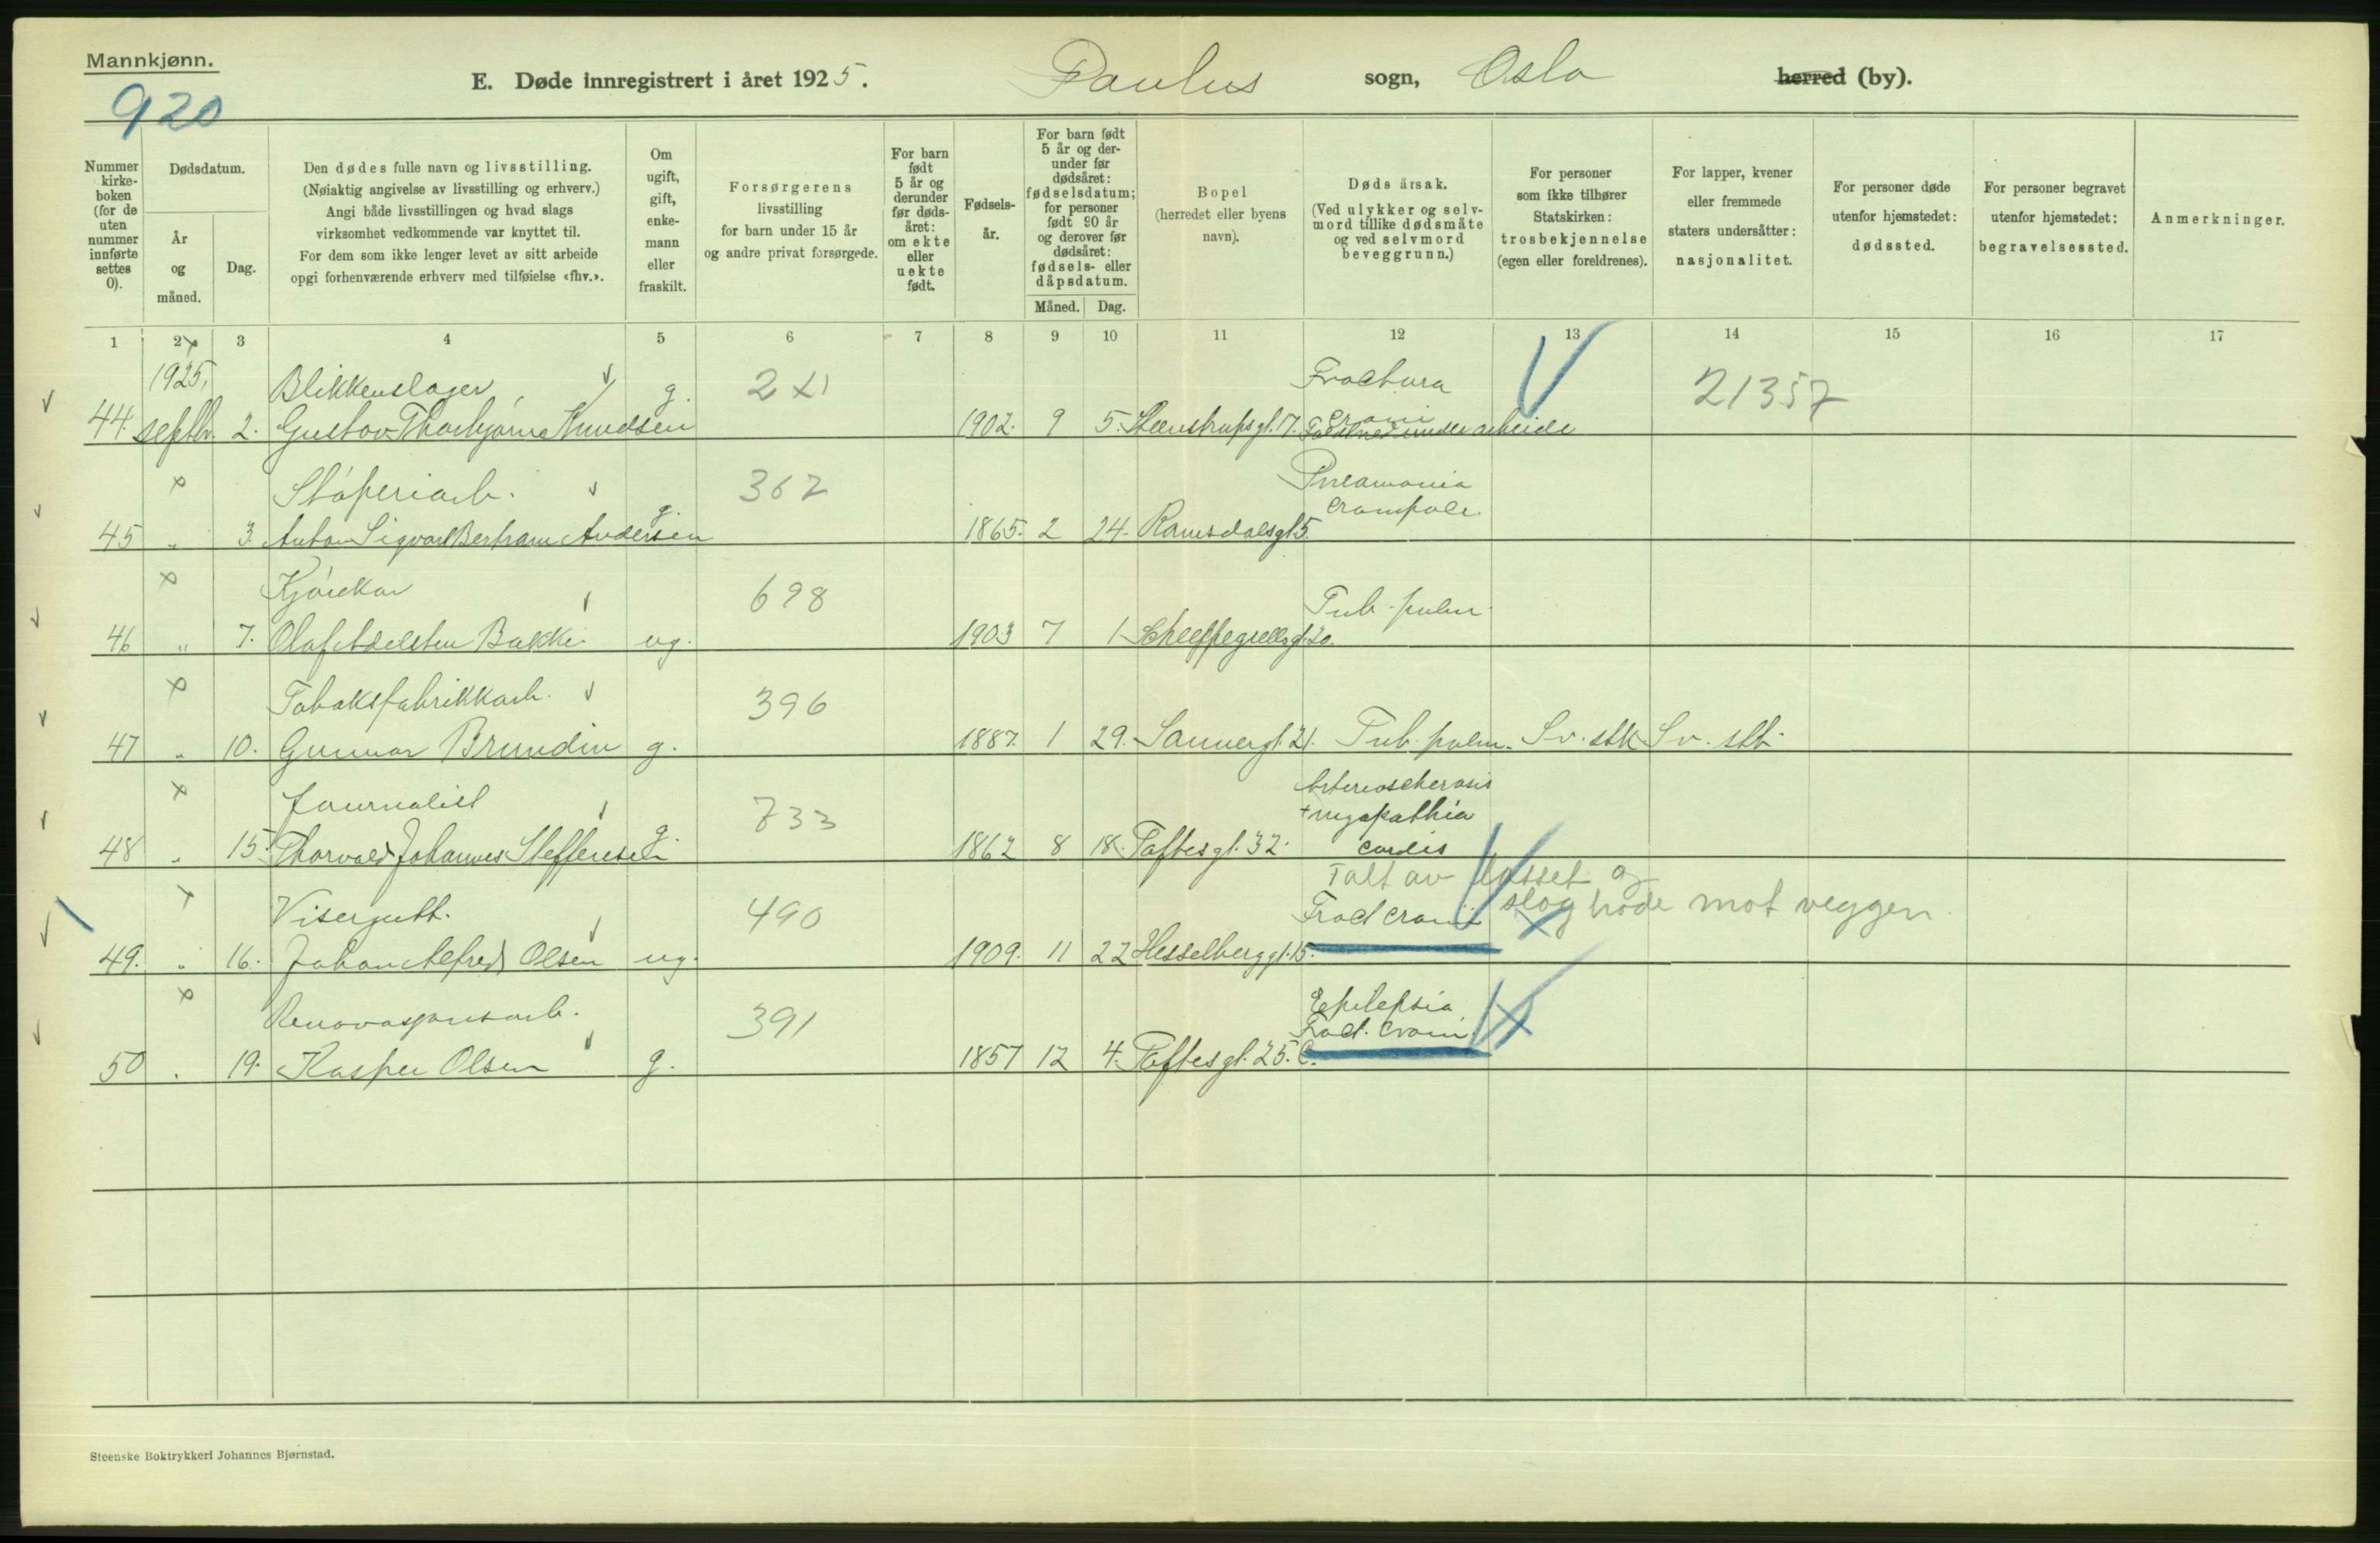 Mannkjønn.
920
E. Døde innregistrert i året 1925. Paulus sogn, Oslo herred (by).
Nummer kirke-boken (for de uten nummer innførte settes 0).
Dødsdatum.
År og måned.
Dag.
Den dødes fulle navn og livsstilling.
(Nøiaktig angivelse av livsstilling og erhverv.)
Angi både livsstillingen og hvad slags
virksomhet vedkommende var knyttet til.
For dem som ikke lenger levet av sitt arbeide
opgi forhenværende erhverv med tilføielse «fhv.».
Om ugift, gift, enke-mann eller fraskilt.
Forsørgerens
livsstilling
for barn under 15 år
og andre privat forsørgede.
For barn født 5 år og derunder før døds-året: om ekte eller uekte født.
Fødsels-år.
For barn født 5 år og der-under før dødsåret: fødselsdatum; for personer født 90 år og derover før dødsåret: fødsels- eller dåpsdatum.
Måned. Dag.
Bopel
(herredet eller byens
navn).
Dødsårsak.
(Ved ulykker og selv-
mord tillike dødsmåte
og ved selvmord
beveggrunn.)
For personer
som ikke tilhører
Statskirken:
trosbekjennelse
(egen eller foreldrenes).
For lapper, kvener
eller fremmede
staters undersåtter:
nasjonalitet.
For personer døde
utenfor hjemstedet:
dødssted.
For personer begravet
utenfor hjemstedet:
begravelsessted.
Anmerkninger.
1 2 3 4 5 6 7 8 9 10 11 12 13 14 15 16 17
1925, Blikkenslager g. 221 Fractura 21357
44. septbr. 2. Gustav Thorbjørn Knudsen 1902. 9 5. Steenstrupsgt. 17. Crani Falt ned under arbeide
Støperiarb. 362 Pneumonia
45 " 3. Anton Sigvard Bertram Andersen g. 1865. 2 24. Romsdalsgt. 5. croupale.
Kjørekar 698 Tub. pulm.
46 " 7. Olaf Adelsten Bakke ug. 1903 7 1 Scheffegrellsgt. 20.
Tobaksfabrikkarb. 396
47 " 10. Gunnar Brundin g. 1887. 1 29. Sannergt. 21. Tub. pulm. Sv. stk. Sv. stb.
Journalist 733 Arteriosclerosis
+ myopathia
48 " 15. Thorvald Johannes Steffensen g. 1862 8 18. Toftesgt. 32. cordis
Falt av lasset og
Visergutt. 490 Fract crani slog hode mot veggen.
49. " 16. Johan Alfred Olsen ug. 1909. 11 22 Hesselberggt. 15.
Renovasjonsarb. 391 Epilepsia
Fract. Crani
50 " 19. Kasper Olsen g. 1857 12 4. Toftesgt. 25. C.
Steenske Boktrykkeri Johannes Bjørnstad.